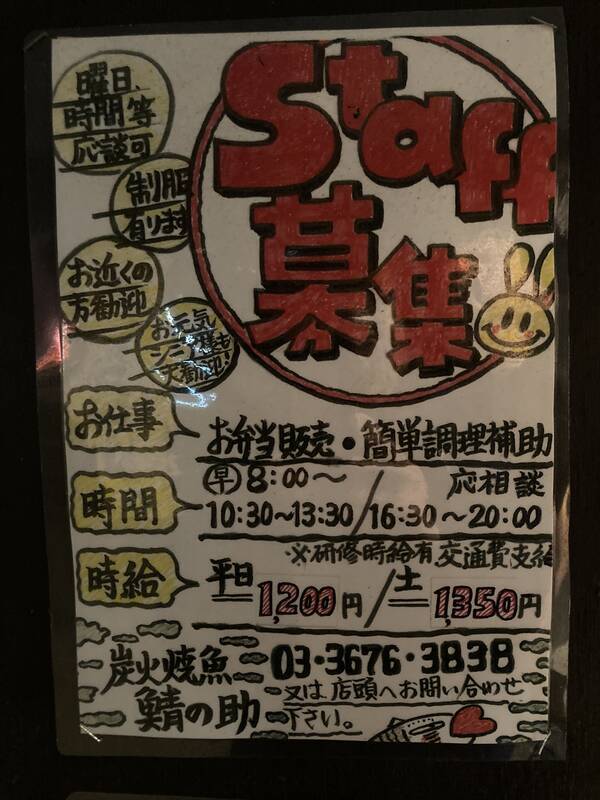 曜日、
時間等
応談可
制服
有ります
お近くの
方歓迎
お元気
シニア様も
大歓迎!
Staff
募集
お仕事
お弁当販売・簡単調理補助
時間
早 8:00～ 応相談
10:30～13:30/16:30～20:00
※研修時給有 交通費支給
時給
平日 1,200円/土 1,350円
炭火焼魚
鯖の助
03・3676・3838
又は、店頭へお問い合わせ
下さい。